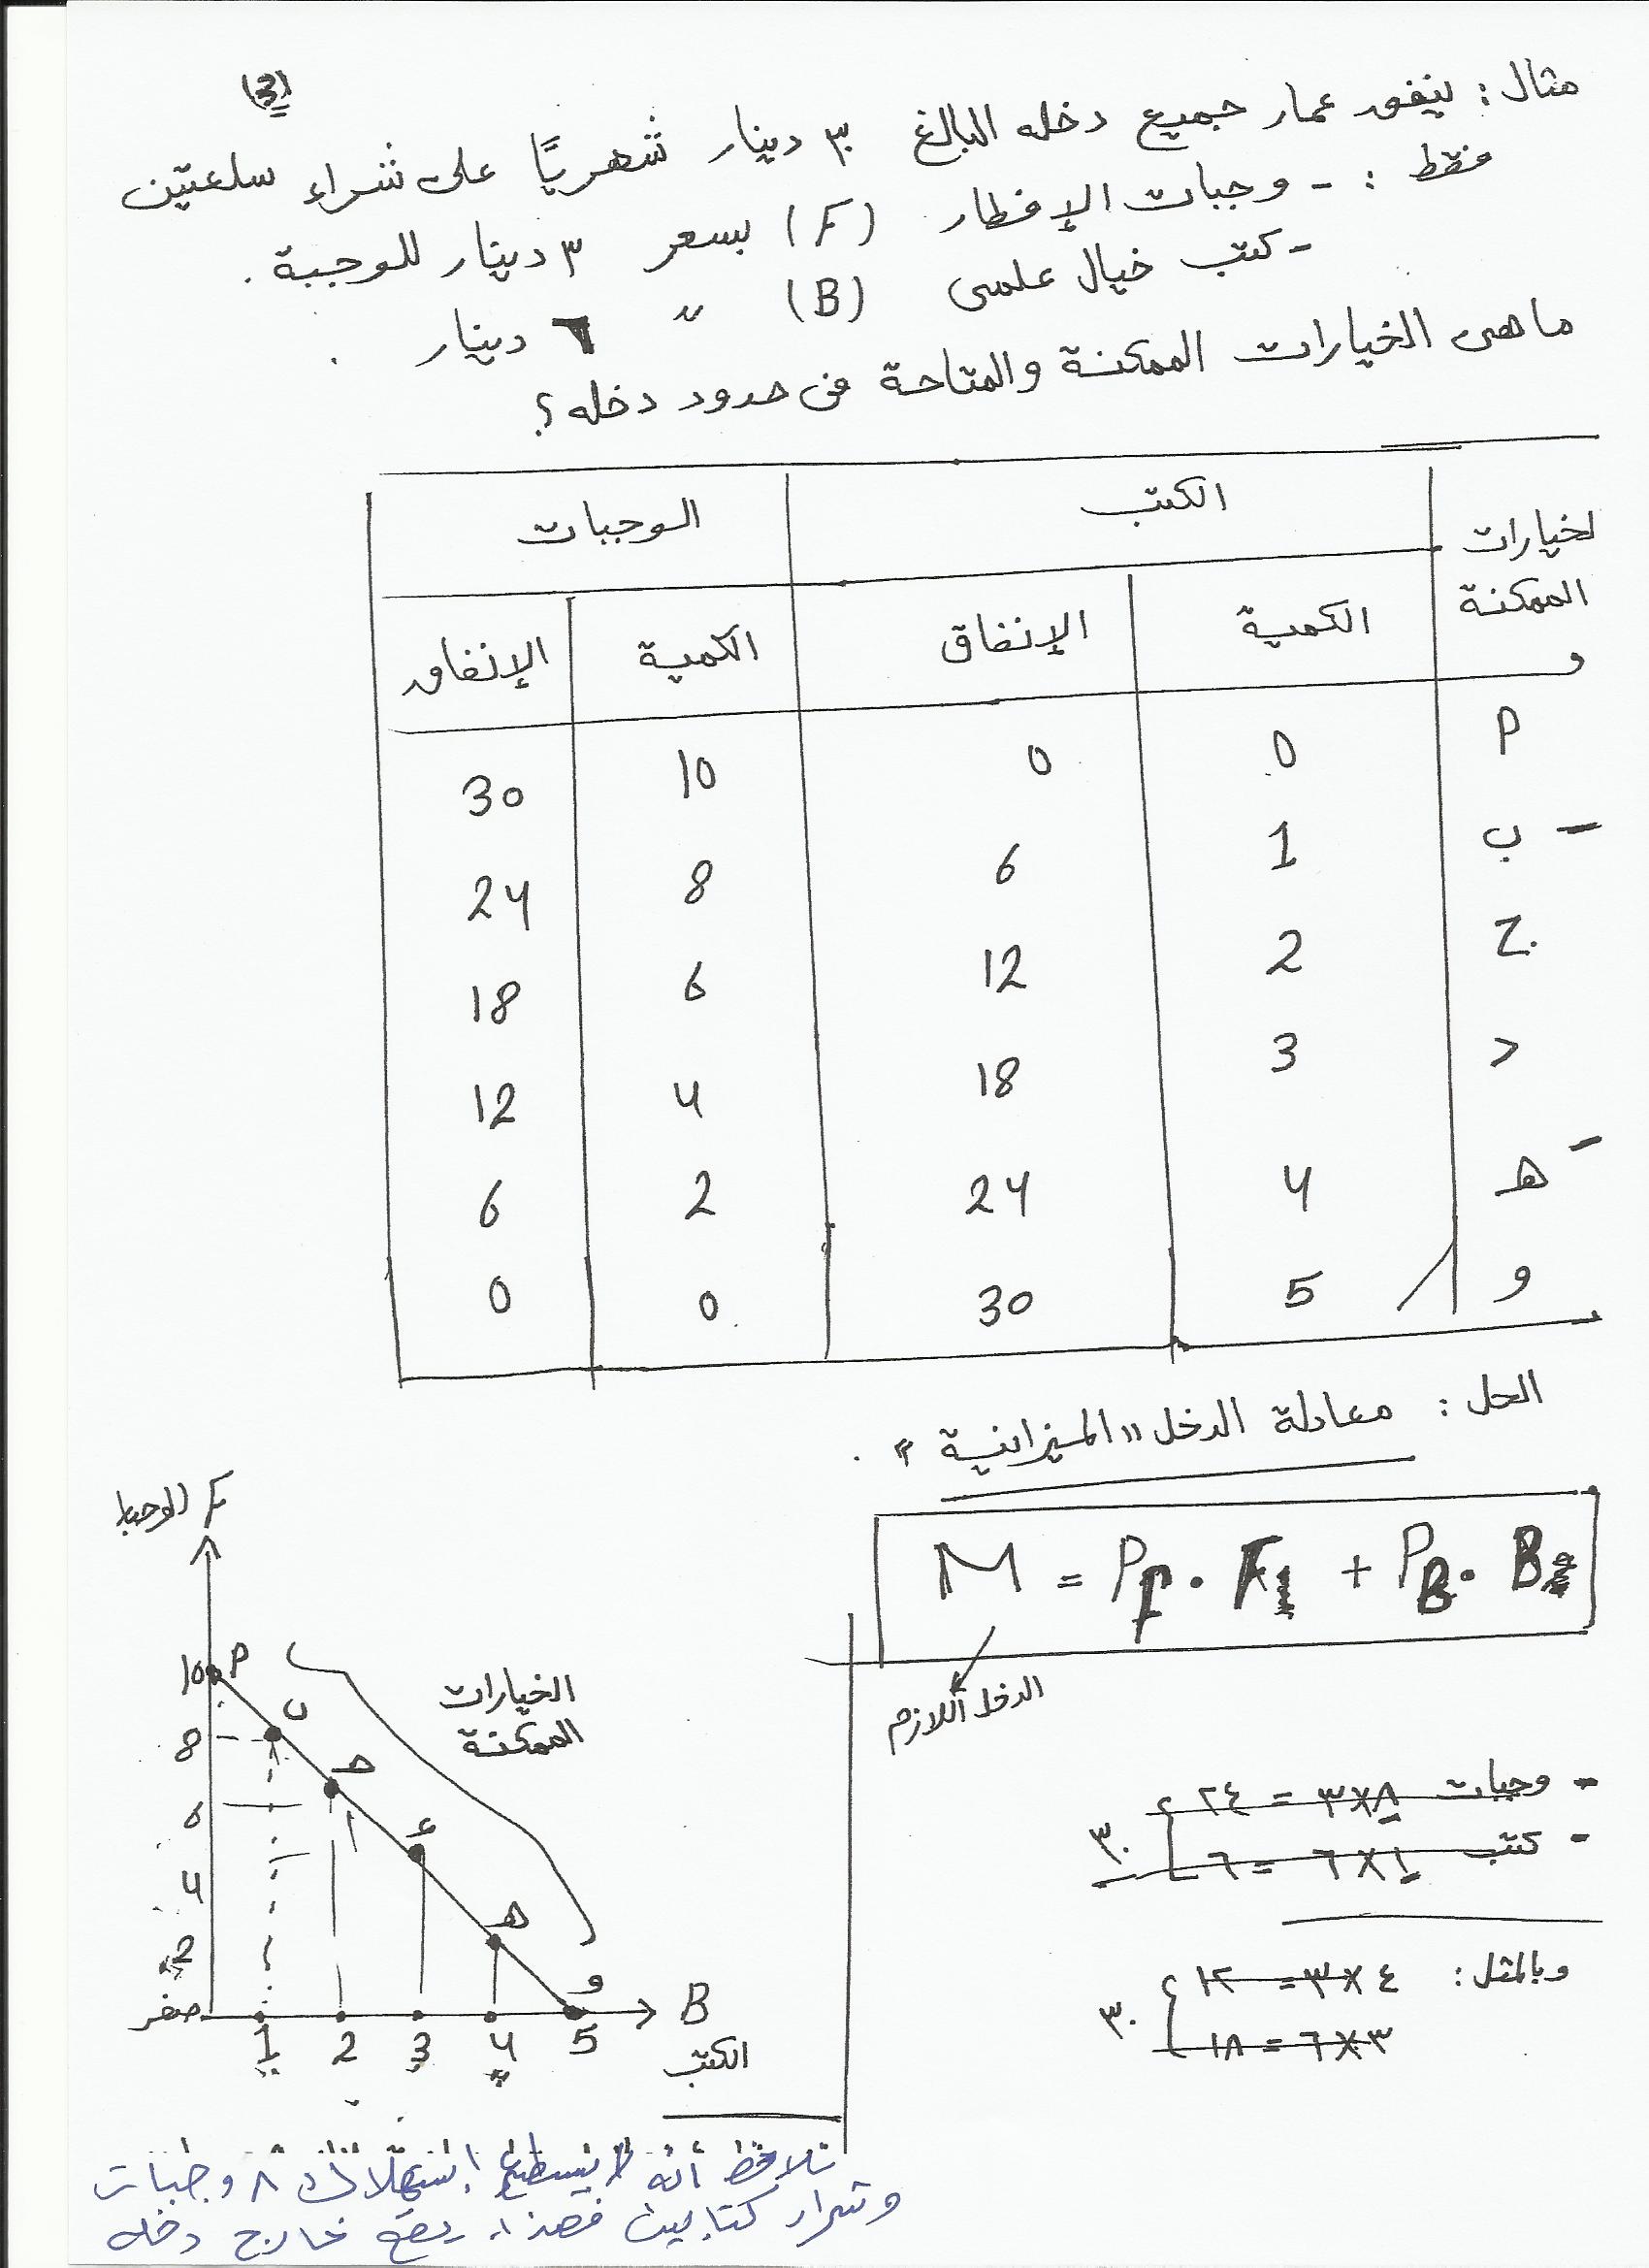 (3)
مثال : ينفق عمار جميع دخله البالغ ٣٠ دينار شهريًا على شراء سلعتين
فقط : - وجبات الإفطار (F) بسعر ٣ دينار للوجبة .
- كتب خيال علمى (B) " ٦ دينار .
ما هى الخيارات الممكنة والمتاحة فى حدود دخله ؟
لخيارات الممكنة | الكتب | الوجبات
الكمية | الإنفاق | الكمية | الإنفاق
أ 0 0 10 30
ب 1 6 8 24
ج 2 12 6 18
د 3 18 4 12
هـ 4 24 2 6
و 5 30 0 0
الحل : معادلة الدخل "الميزانية" .
M = PF . F + PB . B
الدخل اللازم
- وجبات ٨×٣ = ٢٤
- كتب ١×٦ = ٦
٣٠
وبالمثل : ٤×٣ = ١٢
٣×٦ = ١٨
٣٠
F الوجبا
10 أ
8 ب
6 حـ
4 ء
2 هـ
صفر و
1 2 3 4 5 B
الكتب
الخيارات
الممكنة
نلاحظ أنه لا يستطيع استهلاك ٨ وجبات
وشراء كتابين فهذا يقع خارج دخله